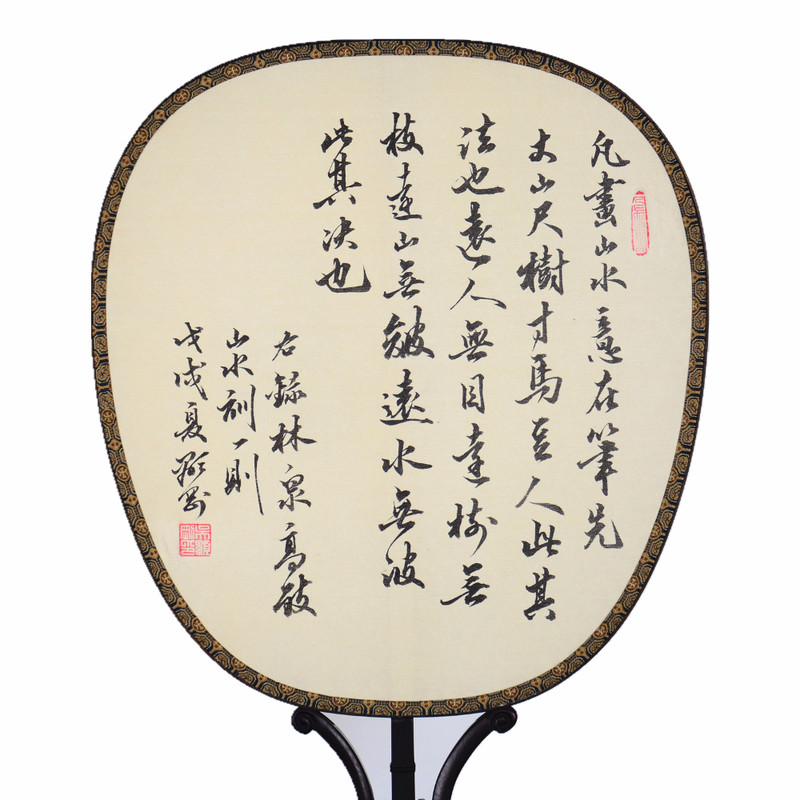 凡畫山水意在筆先
丈山尺樹寸馬豆人此其
法也遠人無目遠樹無
枝遠山無皴遠水無波
此其决也
右録林泉高致
山水訓一則
戊戌夏